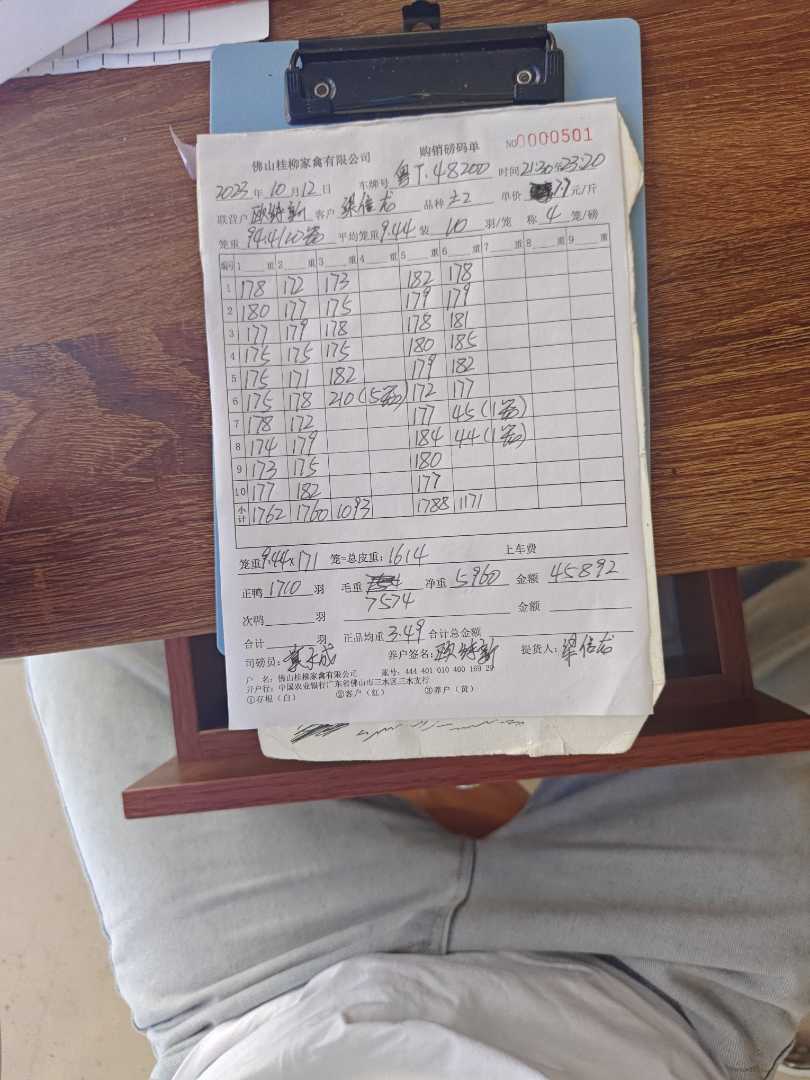 佛山桂柳家禽有限公司 购销磅码单 NO0000501
2023年10月12日 车牌号 粤T.48200 时间21:30至23:20
联营户 欧锦新 客户 梁信龙 品种 土2 单价 7.9元/斤
笼重 94.4/10笼 平均笼重9.44 装 10 羽/笼 称 4 笼/磅
编号 1 重 2 重 3 重 4 重 5 重 6 重 7 重 8 重 9 重
1 178 172 173 182 178
2 180 177 175 179 179
3 177 179 178 178 181
4 175 175 175 180 185
5 175 171 182 179 182
6 175 178 210(5笼) 172 177
7 178 172 177 45(1笼)
8 174 179 184 44(1笼)
9 173 175 180
10 177 182 177
小计 1762 1760 1093 1788 1171
笼重9.44×171 笼=总皮重:1614 上车费
正鸭 1710 羽 毛重 7574 净重 5960 金额 45892
次鸭 羽 金额
合计 羽 正品均重 3.49 合计总金额
司磅员: 养户签名:欧锦新 提货人:梁信龙
户 名:佛山桂柳家禽有限公司 账号:444 401 010 400 169 29
开户行:中国农业银行广东省佛山市三水区三水支行
①存根(白) ②客户(红) ③养户(黄)